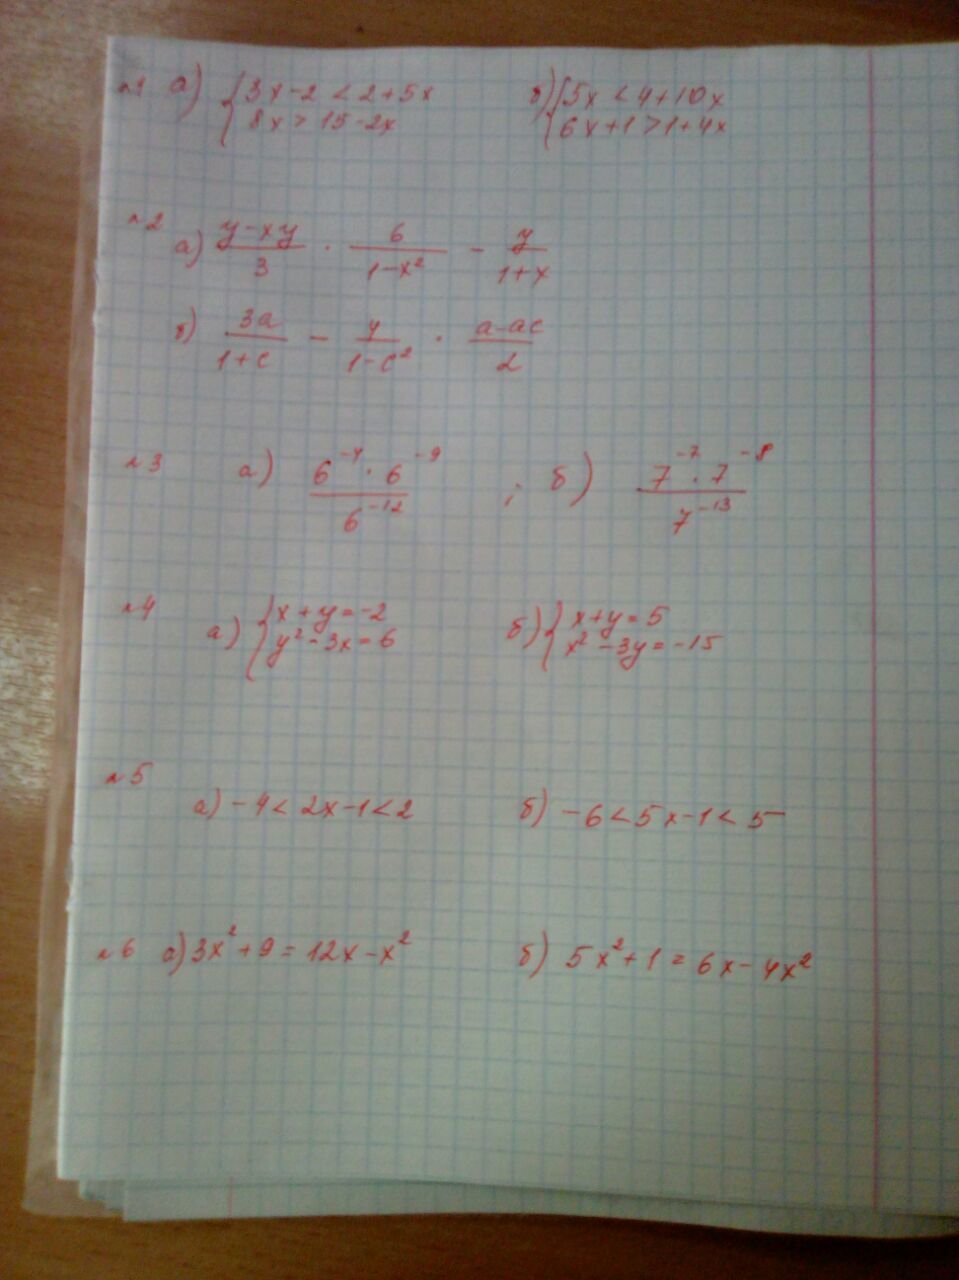 №1 а) { 3x-2 < 2+5x б) { 5x < 4+10x
8x > 15-2x 6x+1 > 1+4x
№2 а) (y-xy)/3 · 6/(1-x²) - y/(1+x)
б) 3a/(1+c) - 4/(1-c²) · (a-ac)/2
№3 а) (6⁻⁴ · 6⁻⁹)/6⁻¹² ; б) (7⁻⁷ · 7⁻⁸)/7⁻¹³
№4 а) { x+y=-2 б) { x+y=5
y²-3x=6 x²-3y=-15
№5 а) -4<2x-1<2 б) -6<5x-1<5
№6 а) 3x²+9=12x-x² б) 5x²+1=6x-4x²